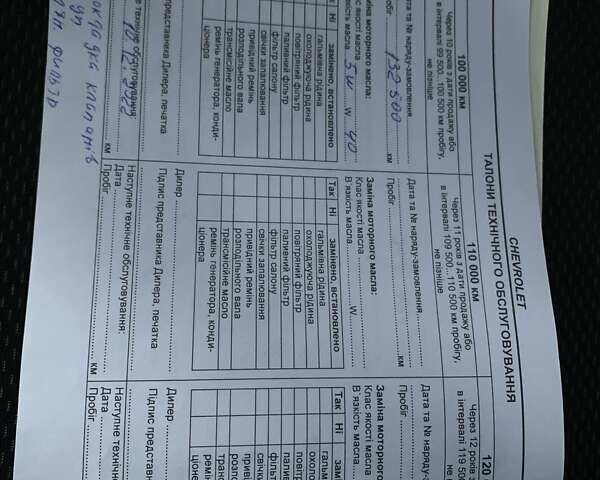 CHEVROLET
ТАЛОНИ ТЕХНІЧНОГО ОБСЛУГОВУВАННЯ
100 000 км
Через 10 років з дати продажу або
в інтервалі 99 500...100 500 км пробігу,
не пізніше
Дата та № наряду-замовлення
Пробіг 132 500 км
Заміна моторного масла:
Клас якості масла
В'язкість масла 5 W 40
Так Ні замінено, встановлено
гальмівна рідина
охолоджуюча рідина
повітряний фільтр
паливний фільтр
фільтр салону
свічки запалювання
привідний ремінь
розподільного вала
трансмісійне масло
ремінь генератора, конди-
ціонера
представника Дилера, печатка
технічне обслуговування
км
110 000 км
Через 11 років з дати продажу або
в інтервалі 109 500...110 500 км пробігу,
не пізніше
Дата та № наряду-замовлення
Пробіг км
Заміна моторного масла:
Клас якості масла
В'язкість масла W
Так Ні замінено, встановлено
гальмівна рідина
охолоджуюча рідина
повітряний фільтр
паливний фільтр
фільтр салону
свічки запалювання
привідний ремінь
розподільного вала
трансмісійне масло
ремінь генератора, конди-
ціонера
Дилер
Підпис представника Дилера, печатка
Наступне технічне обслуговування:
Дата
Пробіг км
120
Через 12 років з
в інтервалі 119 5
Дата та № наряду-
Пробіг
Заміна моторного
Клас якості масла
В'язкість масла
Так Ні замі
гальм
охоло
повіт
палив
фільт
свічк
приві
розпо
транс
ремін
ціоне
Дилер
Підпис представ
Наступне технічн
Дата
Пробіг